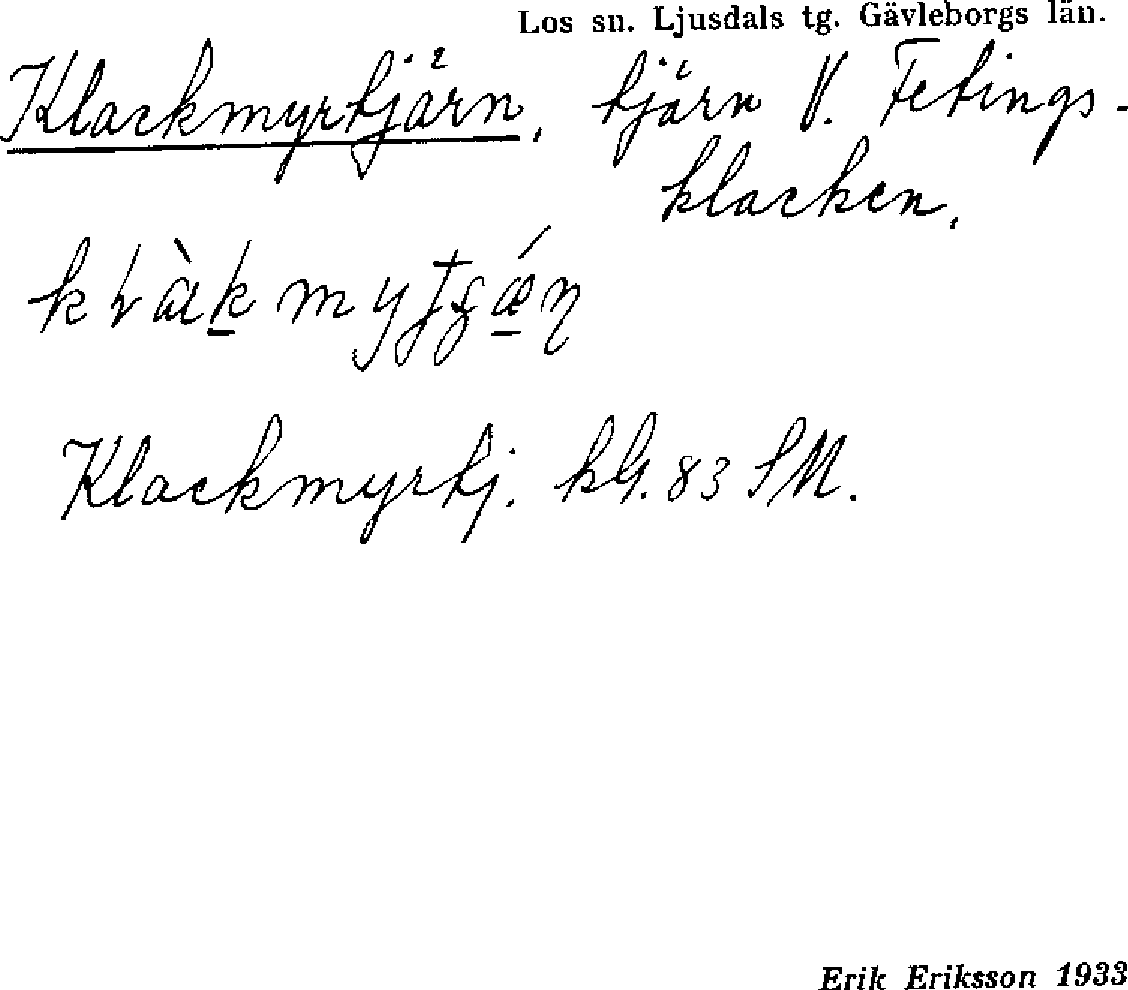 Los sn. Ljusdals tg. Gävleborgs län.
Klackmyrtjärn, tjärn V. Fetings-
klacken.
Klackmyrtj. kbl. 83 SM.
Erik Eriksson 1933